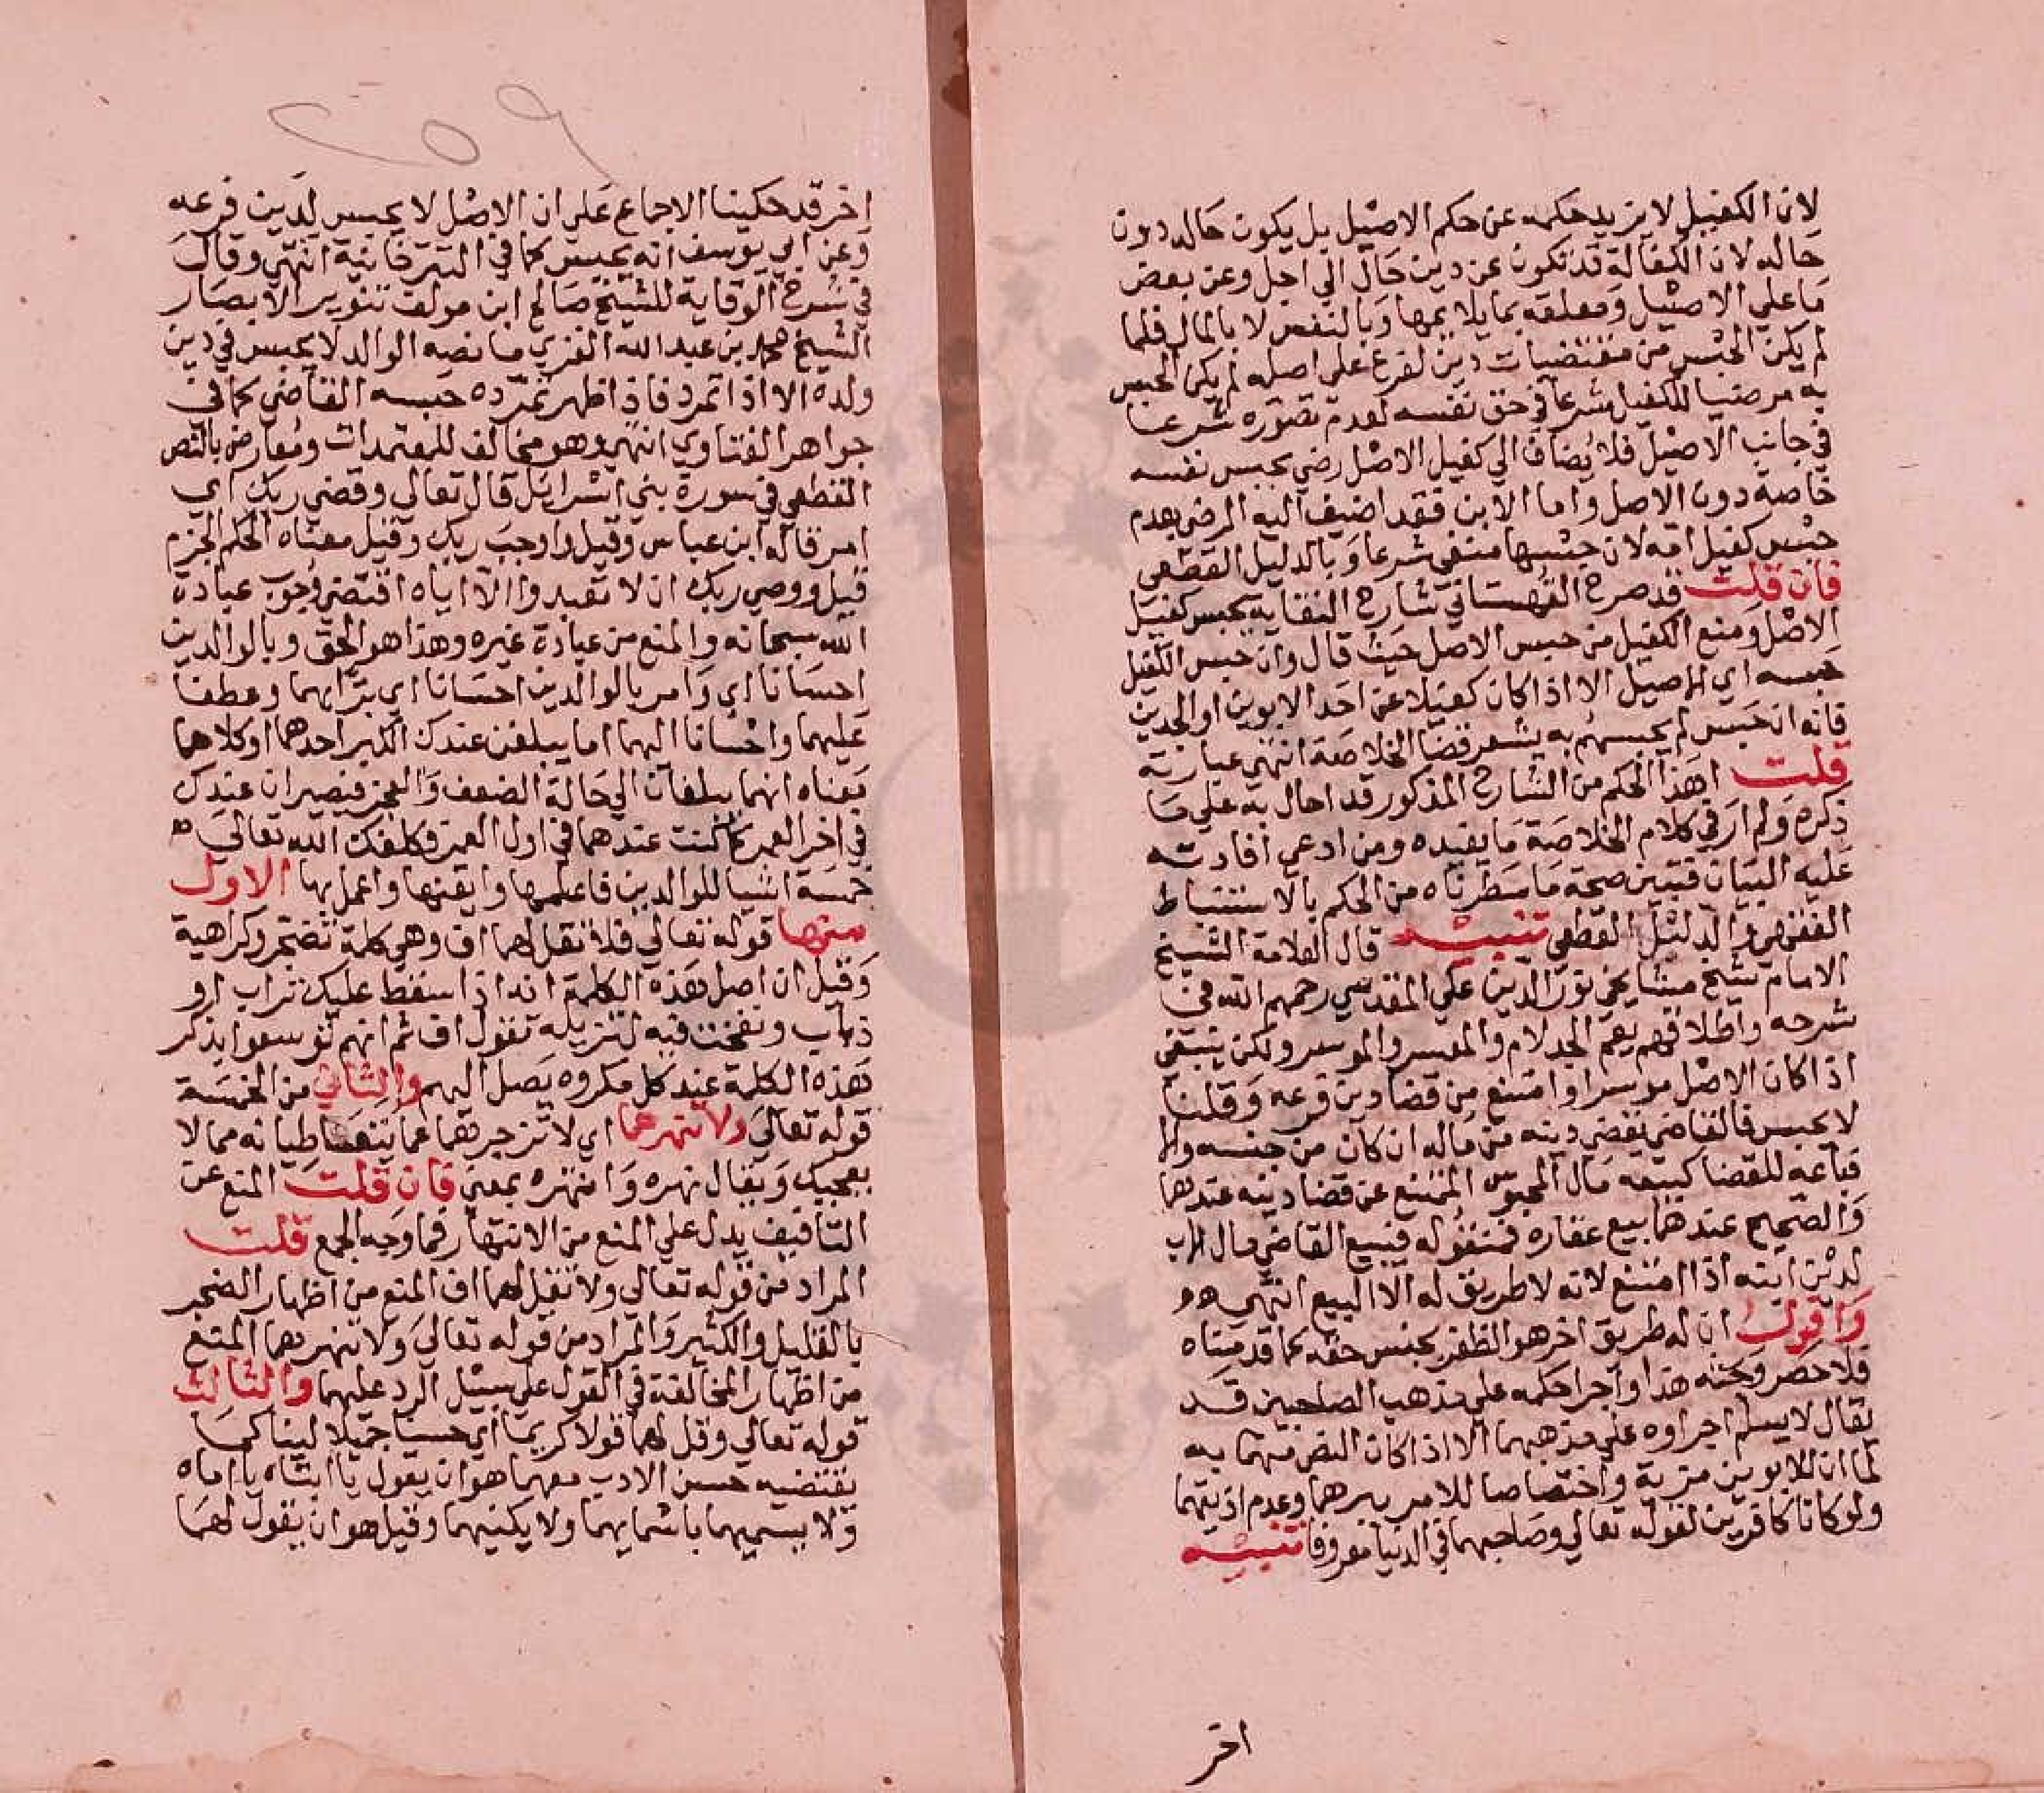 لان الكفيل لا يزيد حكمه عن حكم الاصيل بل يكون حاله دون
حاله لان الكفالة قد تكون عن دين حال الي اجل وعن بعض
ما على الاصيل ومعلقه بما يلايمها وبالنفس لا بالمال فلما
لم يكن الحبس من مقتضيات دين لفرع على اصله لم يكن الحبس
به مرضيا للكفيل شرعا في حق نفسه لعدم تصوره شرعا
في جانب الاصيل فلا يضاف الي كفيل الاصل رضي بحبس نفسه
خاصة دون الاصل واما الابن فقد اضيف اليه الرضي بعدم
حبس كفيل امه لان حبسها منتفي شرعا وبالدليل القطعي
فان قلت قد صرح القهستاني شارح النقاية بحبس كفيل
الاصل ومنع الكفيل من حبس الاصل حيث قال وان حبس الكفيل
حبسه اي الاصيل الا اذا كان كفيلا عن احد الابوين او الجدين
فانه ان حبس لم يحبسهم به يشعر قضا الخلاصة انتهي عبارته
قلت اهذا الحكم من الشارح المذكور قد احال به علي ما
ذكره ولم ار في كلام الخلاصة ما يفيده ومن ادعي افادته
عليه البيان فتبين صحة ما سطرناه من الحكم بالاستنباط
الفقهي والدليل القطعي تنبيه قال العلامة الشيخ
الامام شيخ مشايخي نور الدين علي المقدسي رحمهم الله في
شرحه واطلاقهم يعم الجد لام والمعسر والموسر ولكن ينبغي
اذا كان الاصل موسرا وامتنع من قضا دين فرعه وقلنا
لا يحبس فالقاضي يقضي دينه من ماله ان كان من جنسه والا
فباعه للقضا كبيعه مال المحبوس الممتنع عن قضا دينه عندهما
والصحيح عندهما بيع عقاره فمنقوله فيبيع القاضي مال الاب
لدين ابنه اذا امتنع لانه لا طريق له الا البيع انتهي
واقول ان له طريق اخر هو الظفر بجنس حقه كما قدمناه
فلا حصر وبحثه هذا واجرا حكمه علي مذهب الصاحبين قد
يقال لا يسلم اجراوه علي مذهبهما الا اذا كان النص منهما به
لما ان للابوين مزية واختصاصا للامر ببرهما وعدم اذيتهما
ولو كانا كافرين لقوله تعالي وصاحبهما في الدنيا معروفا تنبيه
اخر
اخر قد حكينا الاجماع على ان الاصل لا يحبس لدين فرعه
وعن ابي يوسف انه يحبس كما في التترخانية انتهي وقال
في شرح الوقاية للشيخ صالح ابن مولف تنوير الابصار
الشيخ محمد بن عبد الله الغزي ما نصه الوالد لا يحبس في دين
ولده الا اذا تمرد فاذا ظهر تمرده حبسه القاضي كما في
جواهر الفتاوي انتهي وهو مخالف للمعتمدات ومعارض بالنص
القطعي في سورة بني اسرائل قال تعالى وقضي ربك اي
امر قاله ابن عباس وقيل واوجب ربك وقيل معناه الحكم الجزم
قيل ووصي ربك ان لا تعبدوا الا اياه اقتضي وجوب عبادة
الله سبحانه والمنع من عبادة غيره وهذا هو الحق وبالوالدين
احسانا اي وامر بالوالدين احسانا اي برا بهما وعطفا
عليهما واحسانا اليهما اما يبلغن عندك الكبر احدهما او كلاهما
معناه انهما يبلغان الي حالة الضعف والعجز فيصيران عندك
في اخر العمر كما كنت عندهما في اول العمر فكلفك الله تعالى
خمسة اشيا للوالدين فاعلمها وايقنها واعمل بها الاول
منها قوله تعالي فلا تقل لهما اف وهي كلمة تضجر وكراهية
وقيل ان اصل هذه الكلمة انه اذا سقط عليك تراب او
ذباب ونفخت فيه لتزيله تقول اف ثم انهم توسعوا بذكر
هذه الكلمة عند كل مكروه يصل اليهم والثاني من الخمسة
قوله تعالى ولا تنهرهما اي لا تزجرهما عما يتعاطيانه مما لا
يعجبك ويقال نهره وانتهره بمعني فان قلت المنع عن
التافيف يدل علي المنع من الانتهار فما وجه الجمع قلت
المراد من قوله تعالي ولا تقل لهما اف المنع من اظهار الضجر
بالقليل والكثير والمراد من قوله تعالى ولا تنهرهما المنع
من اظهار المخالفة في القول على سبيل الرد عليهما والثالث
قوله تعالي وقل لهما قولا كريما اي حسنا جميلا لينا كما
يقتضيه حسن الادب معهما هو ان يقول يا ابتاه يا اماه
ولا يسميهما باسمايهما ولا يكنيهما وقيل هو ان يقول لهما